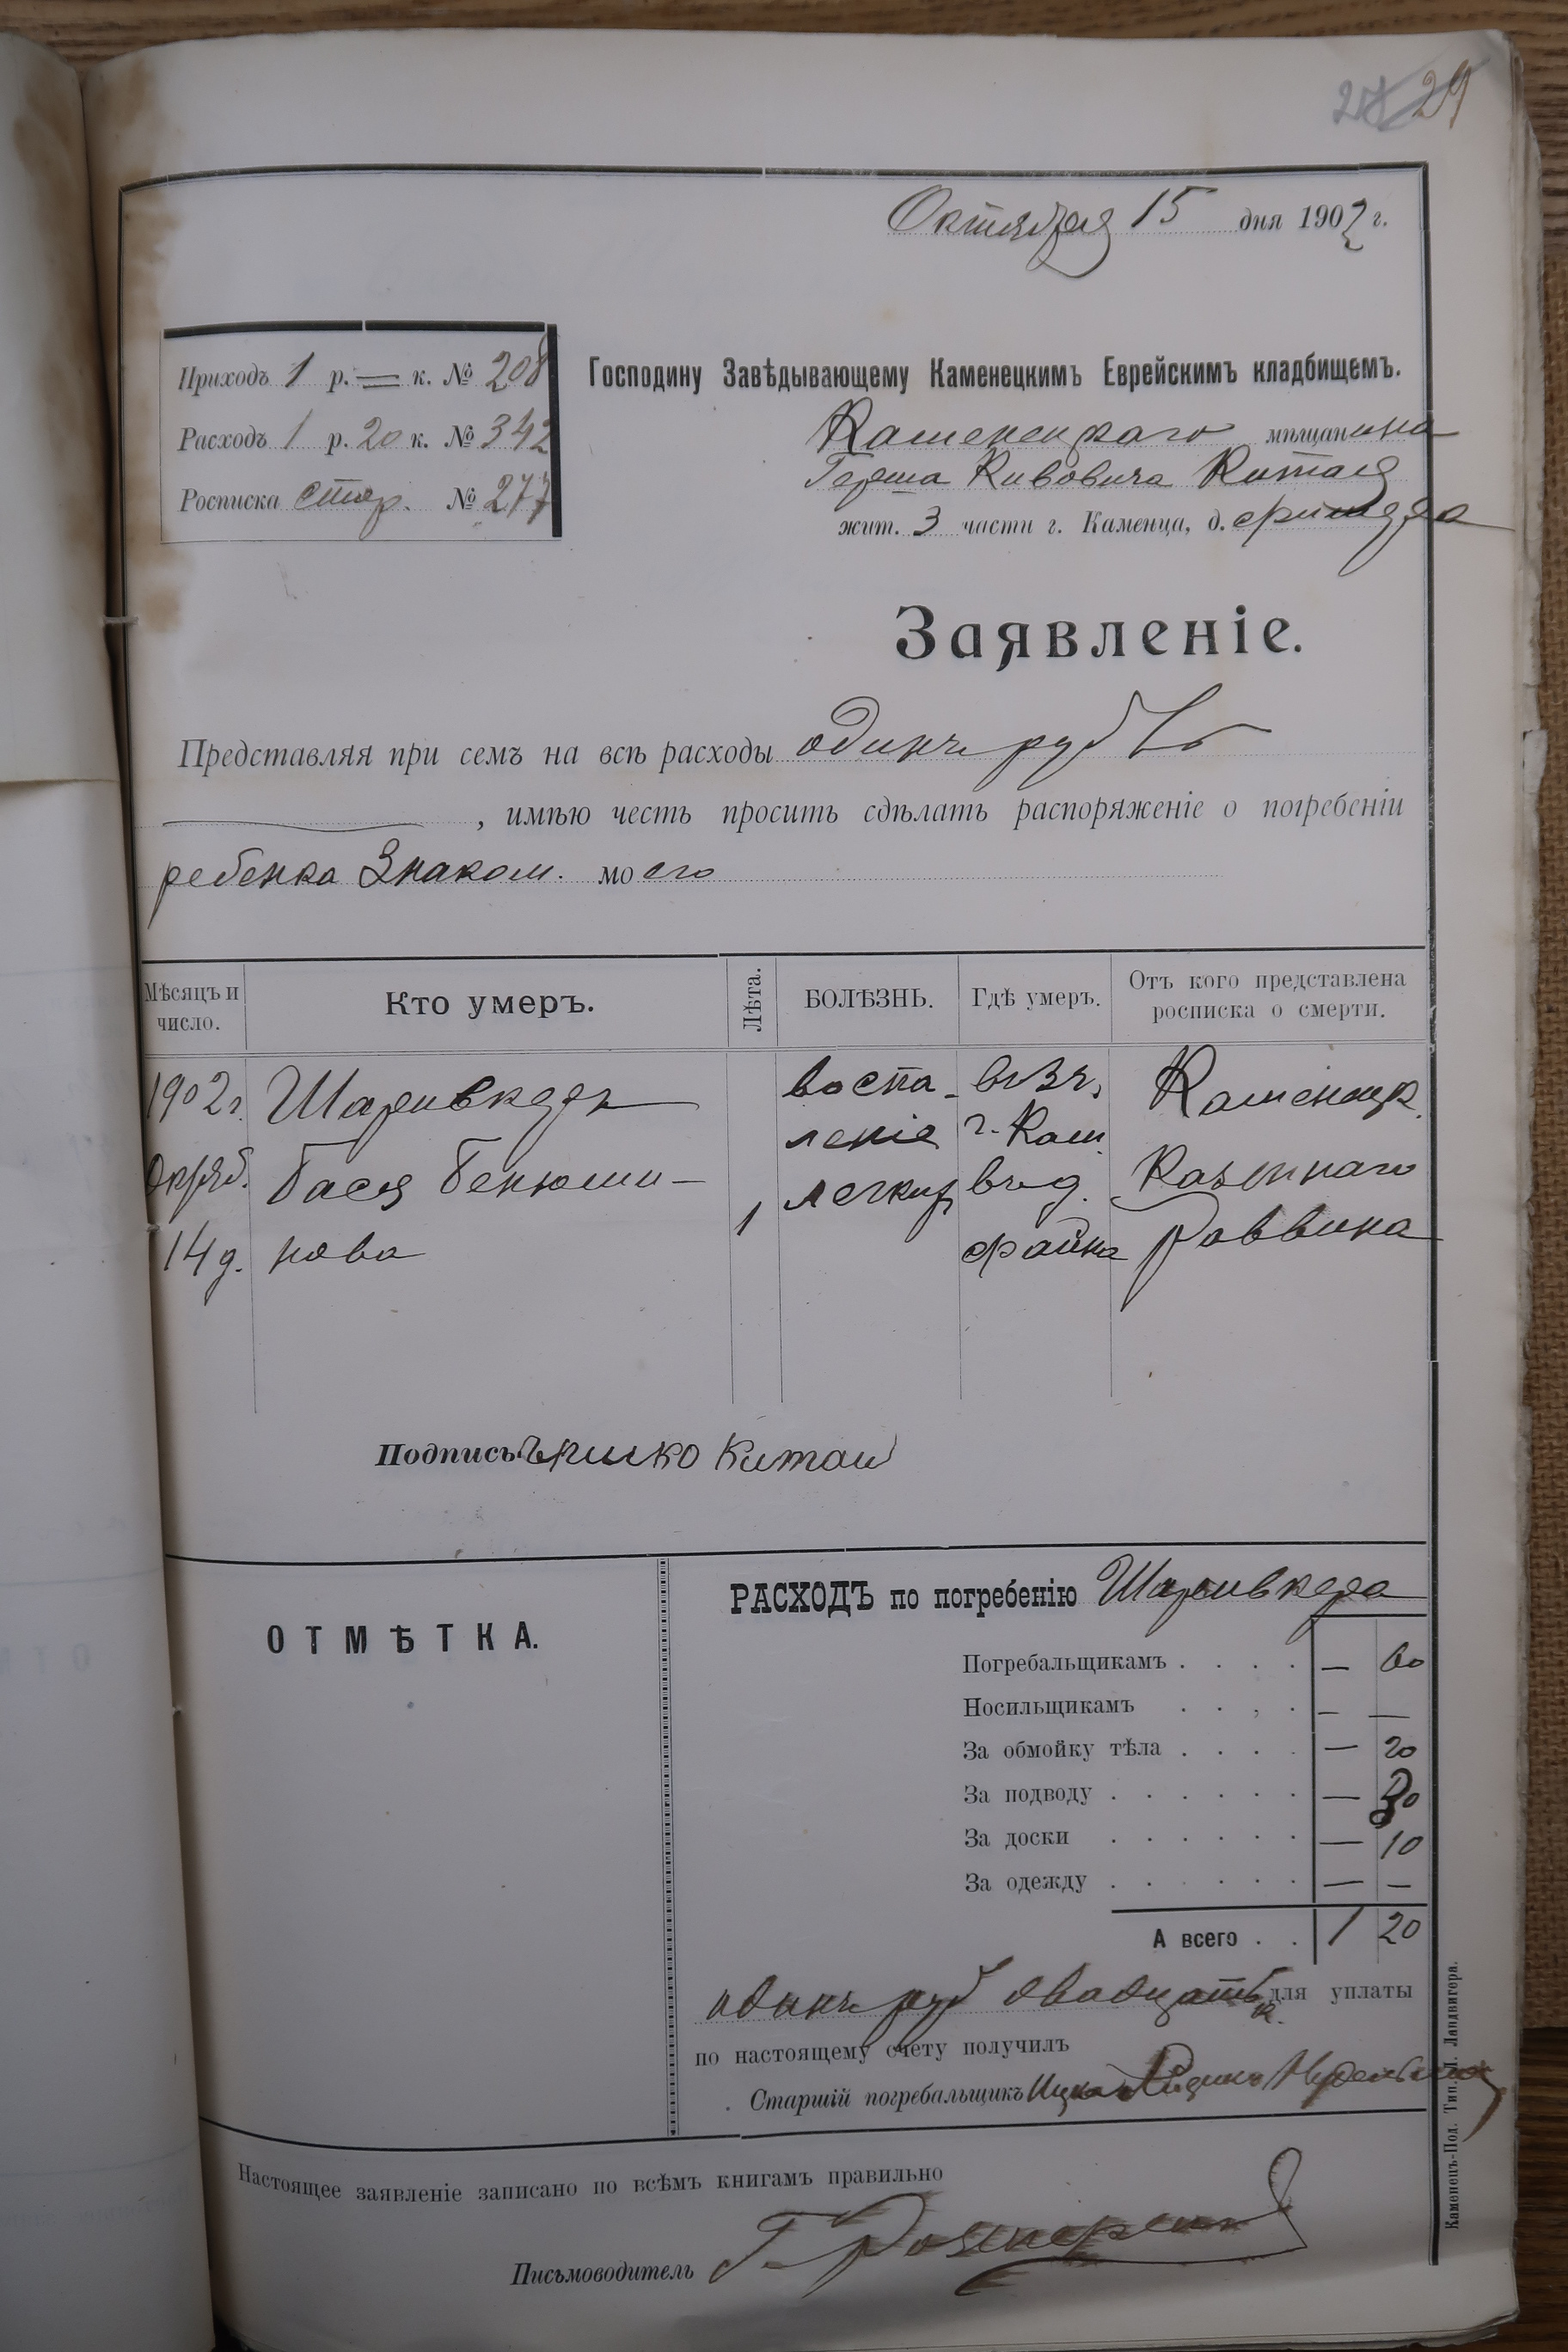 29
Октября 15 дня 1902 г.
Приходъ 1 р. — к. № 208
Расходъ 1 р. 20 к. № 342
Росписка стар. № 277
Господину Завѣдывающему Каменецкимъ Еврейскимъ кладбищемъ.
Каменецкаго мѣщанина
Герша Кивовича Китая
жит. 3 части г. Каменца, д.
Заявленіе.
Представляя при семъ на всѣ расходы одинъ рубль
, имѣю честь просить сдѣлать распоряженіе о погребеніи
ребенка Знаком. моего
Мѣсяцъ и число.
Кто умеръ.
Лѣта.
БОЛѢЗНЬ.
Гдѣ умеръ.
Отъ кого представлена росписка о смерти.
1902 г. Октяб. 14 д.
Шаривкеръ
Бася Бенюми-
нова
1
воспа-
леніе
легких
въ 3 ч.
г. Кам.
въ д.
файна
Каменецк.
Казеннаго
Раввина
Подпись Гершко Китаи
ОТМѢТКА.
РАСХОДЪ по погребенію Шаривкера
Погребальщикамъ . . . . — 60
Носильщикамъ . . , . — —
За обмойку тѣла . . . . — 20
За подводу . . . . . . — 30
За доски . . . . . . — 10
За одежду . . . . . . — —
А всего . . 1 20
одинъ руб двадцать к. для уплаты
по настоящему счету получилъ
Старшій погребальщикъ Ицко
Настоящее заявленіе записано по всѣмъ книгамъ правильно
Письмоводитель Г.
Каменецъ-Под. Тип. Л. Ландвигера.